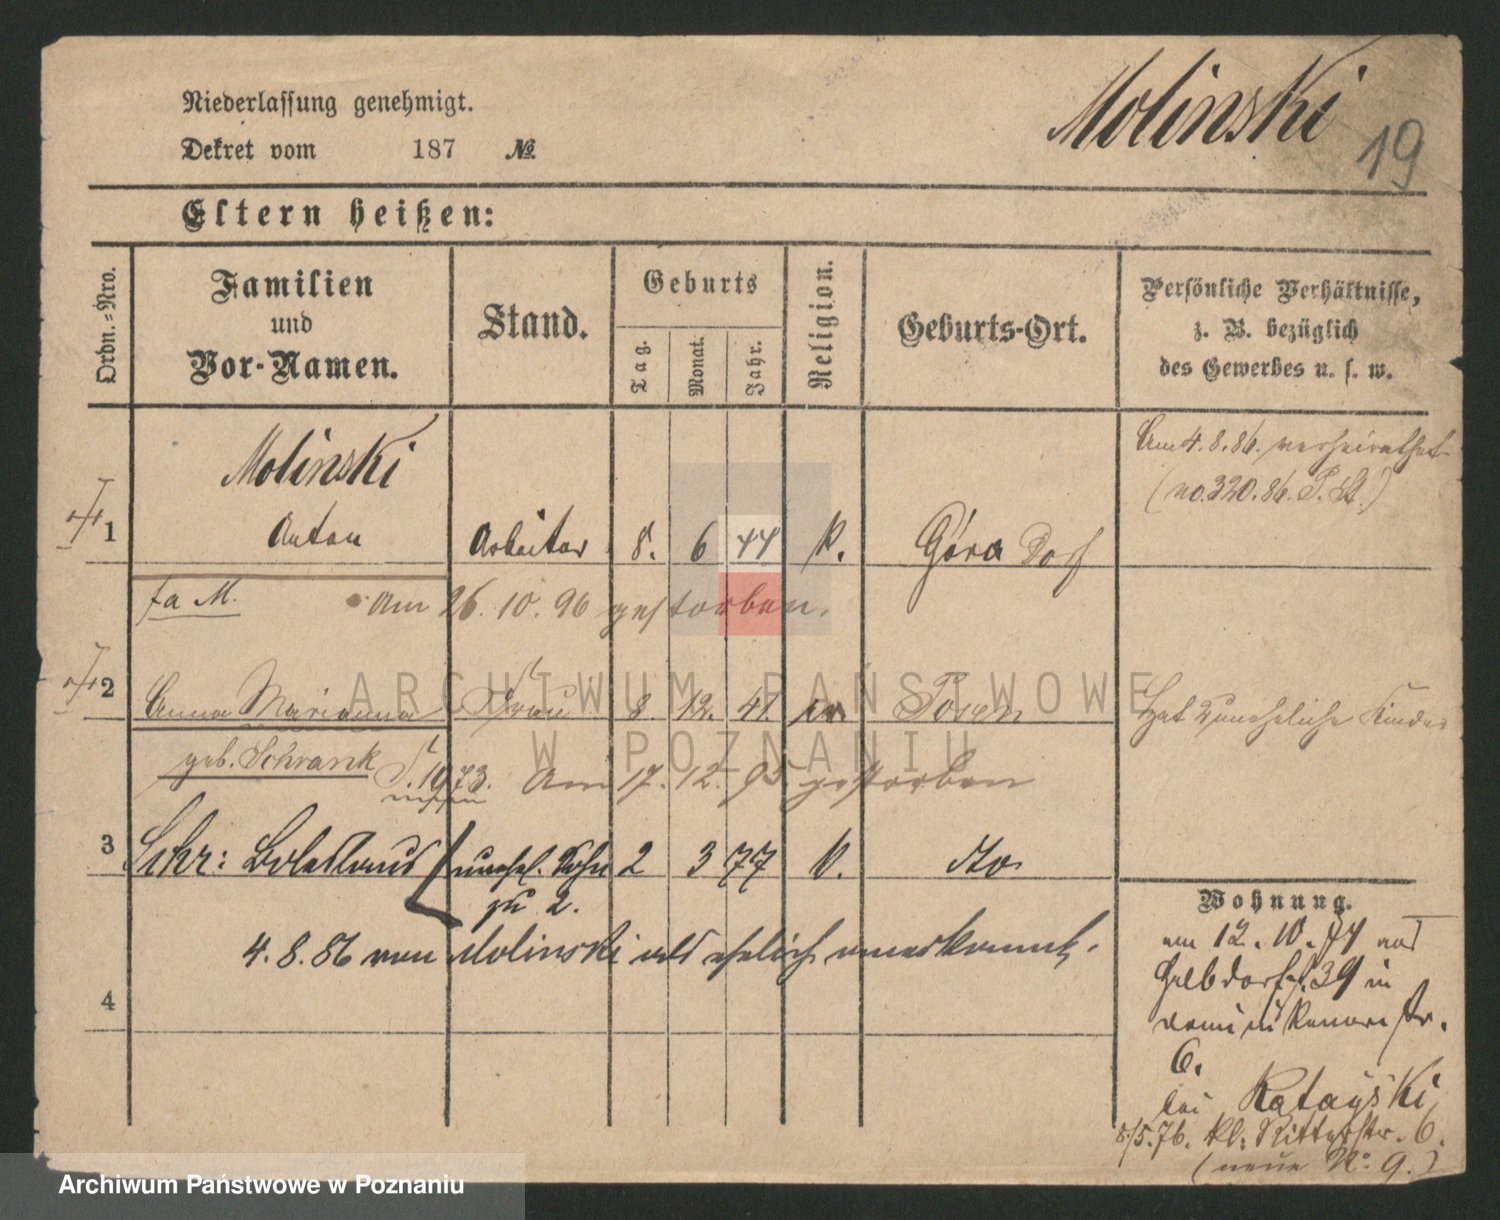 Niederlassung genehmigt.
Dekret vom 187 №
Molinski
19
Eltern heißen:
Ordn.-Nro.
Familien
und
Vor-Namen.
Stand.
Geburts
Tag.
Monat.
Jahr.
Religion.
Geburts-Ort.
Persönliche Verhältnisse,
z. B. bezüglich
des Gewerbes u. s. w.
Molinski
1 Anton Arbeiter 8. 6 44 k. Góra Dorf
Am 4.8.86. verheirathet
(no. 320.86. P. St.)
fa M. Am 26. 10. 96 gestorben.
2 Anna Marianna Frau 8. 12. 41. Posen
Hat 2 uneheliche Kinder
geb. Schrank Am 17. 12. 95 gestorben
3 Schr: Boleslaus unehel. Sohn 2 3 77 k. dto
zu 2.
4.8.86 von Molinski als ehelich anerkannt.
4
Wohnung.
am 12. 10. 74 aus
Halbdorfst. 39 in
Dominikanerstr.
6.
bei Katayski
8/5.76. kl: Ritterstr. 6.
(neue No 9.)
ARCHIWUM PAŃSTWOWE
W POZNANIU
Archiwum Państwowe w Poznaniu